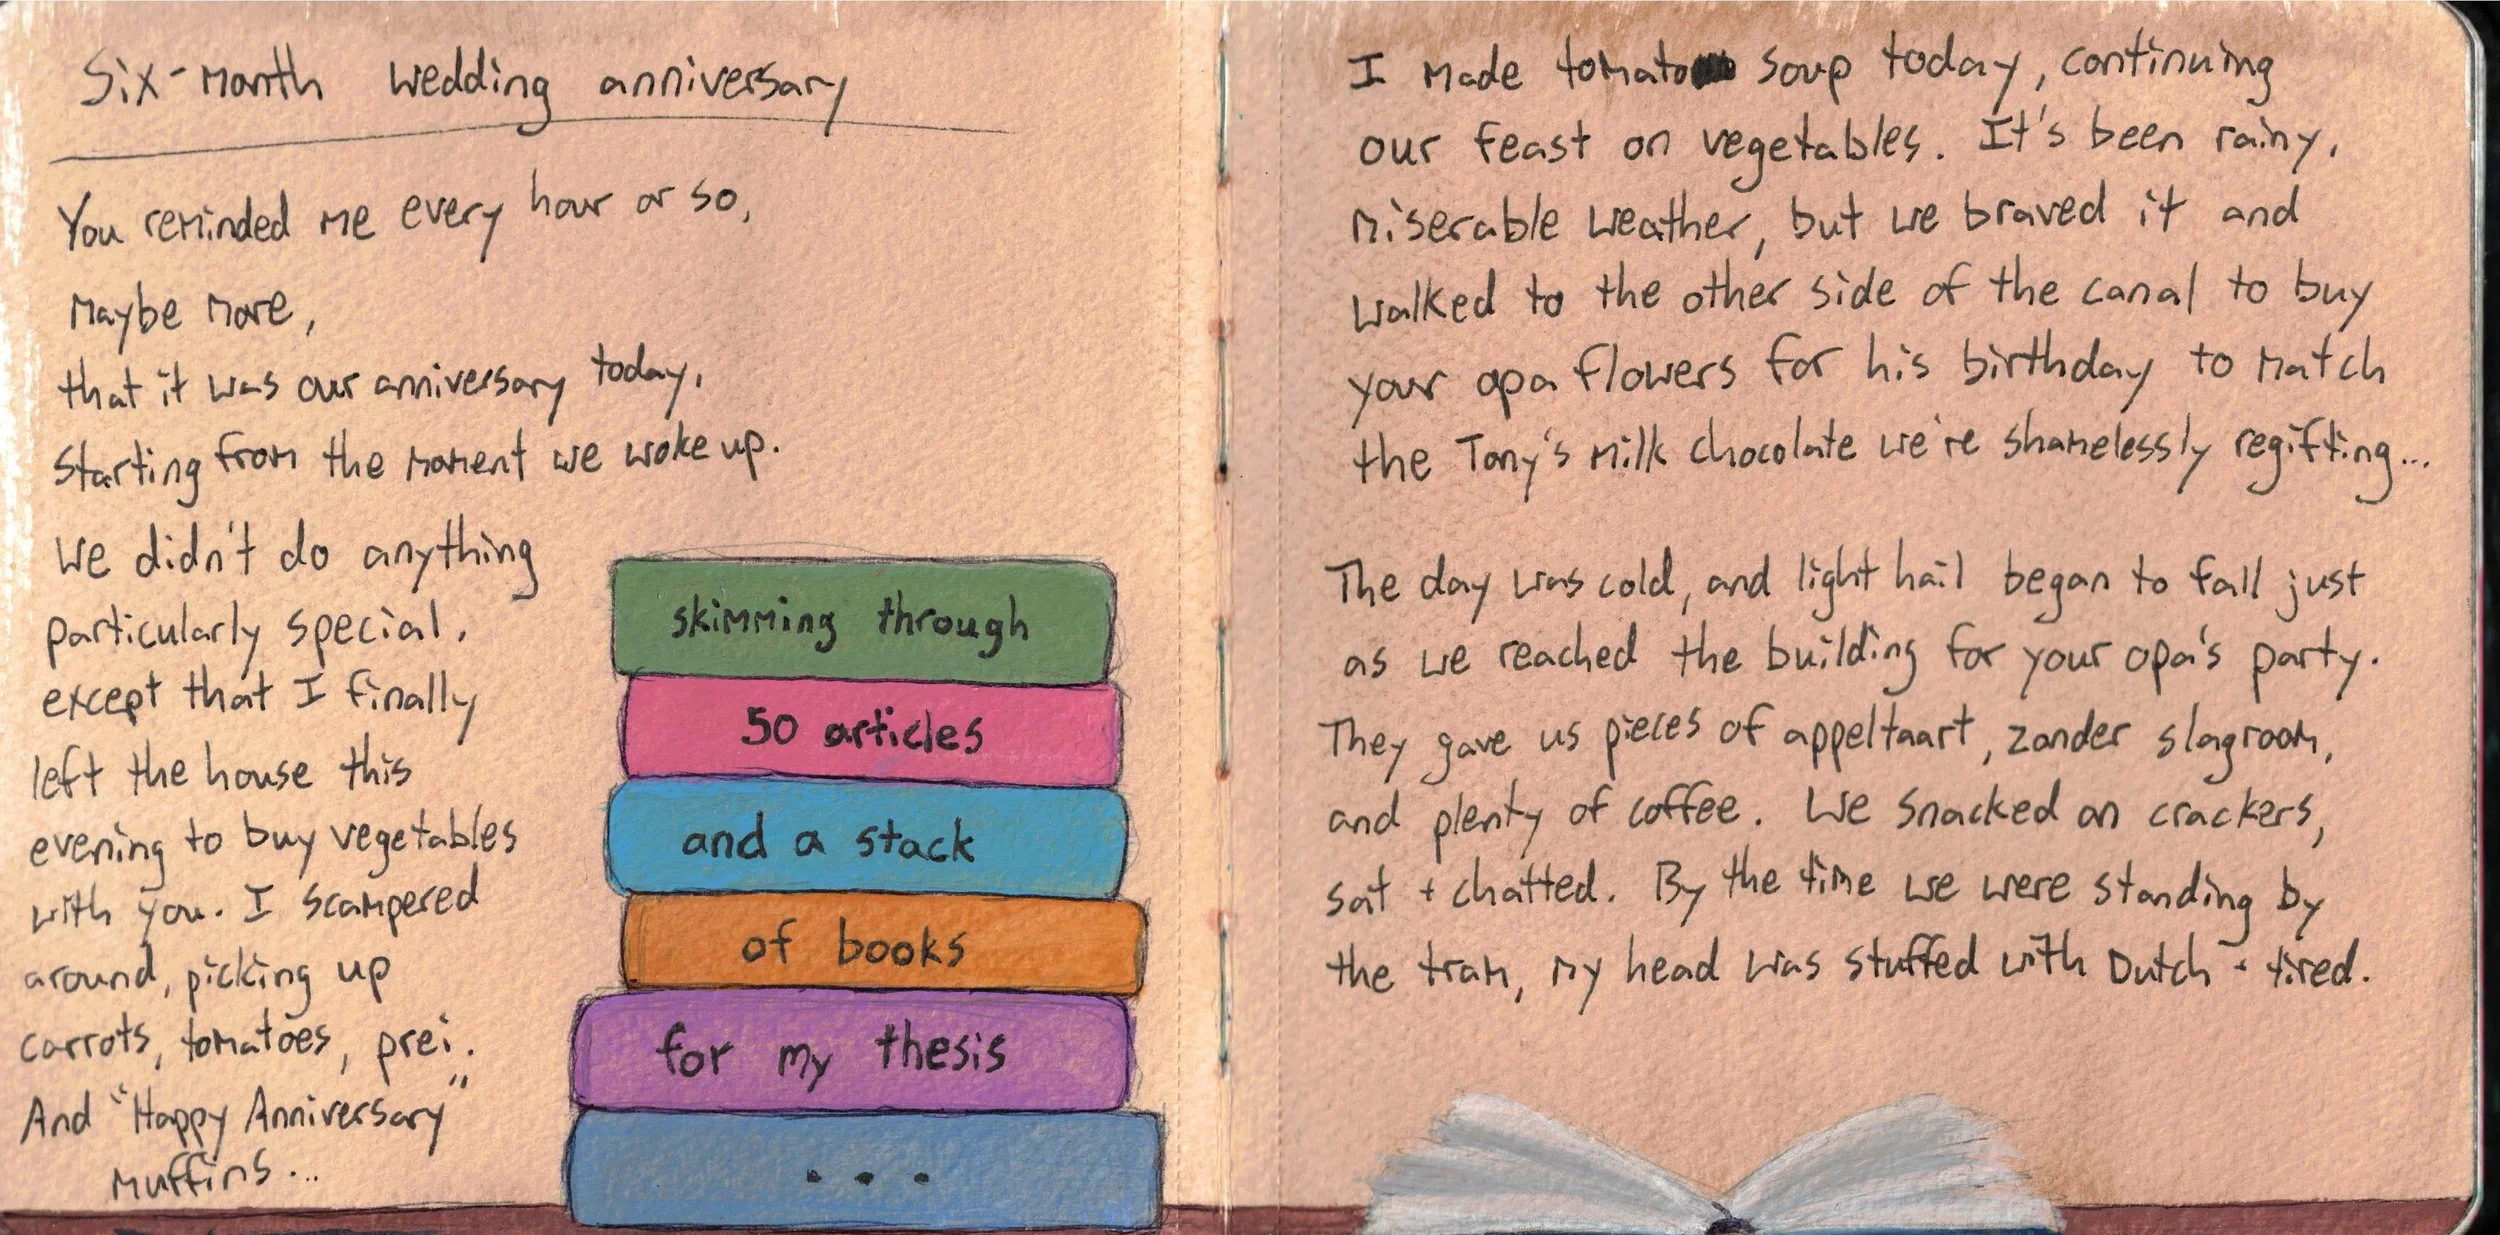 Six-month wedding anniversary
You reminded me every hour or so,
Maybe more,
that it was our anniversary today,
starting from the moment we woke up.
We didn't do anything
particularly special,
except that I finally
left the house this
evening to buy vegetables
with you. I scampered
around, picking up
carrots, tomatoes, prei.
And "Happy Anniversary"
Muffins...
skimming through
50 articles
and a stack
of books
for my thesis
...
I made tomato soup today, continuing
our feast on vegetables. It's been rainy,
miserable weather, but we braved it and
walked to the other side of the canal to buy
your opa flowers for his birthday to match
the Tony's milk chocolate we're shamelessly regifting...
The day was cold, and light hail began to fall just
as we reached the building for your opa's party.
They gave us pieces of appeltaart, zander slagroom,
and plenty of coffee. We snacked on crackers,
sat + chatted. By the time we were standing by
the tram, my head was stuffed with Dutch + tired.